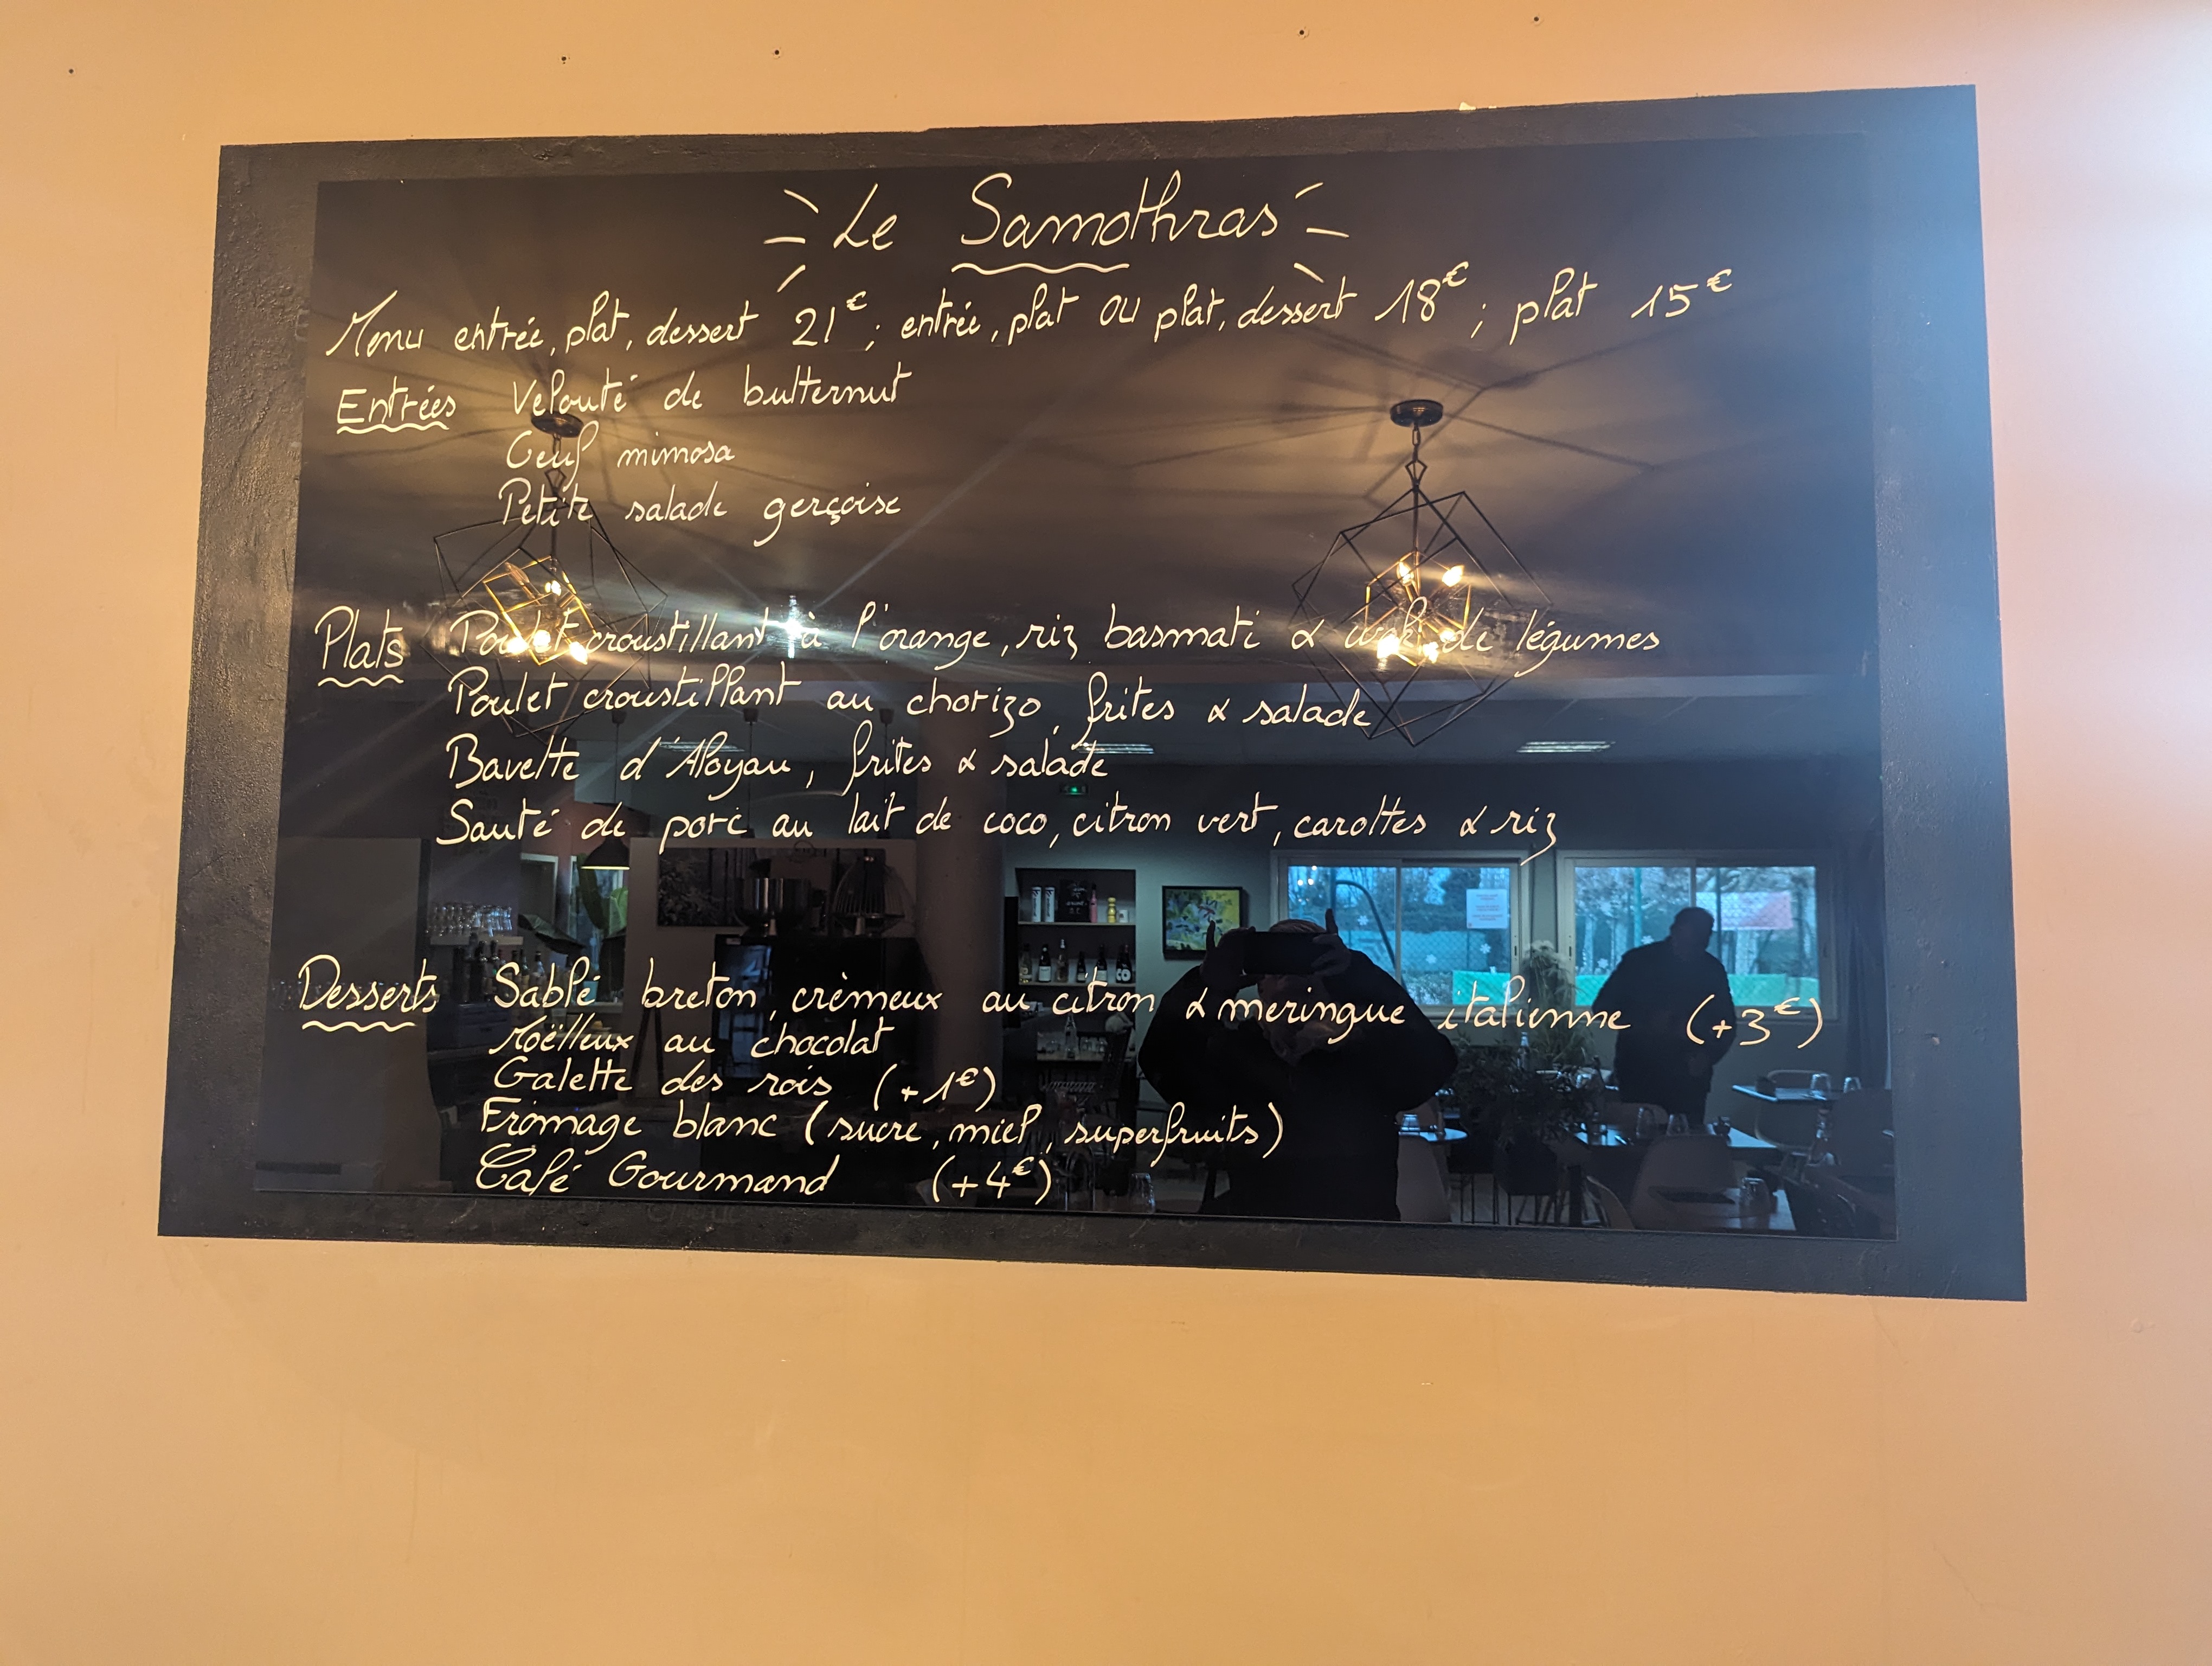 Le Samothras
Menu entrée, plat, dessert 21€ ; entrée, plat ou plat, dessert 18€ ; plat 15€
Entrées Velouté de butternut
Oeuf mimosa
Petite salade gerçoise
Plats Poulet croustillant à l'orange, riz basmati & wok de légumes
Poulet croustillant au chorizo, frites & salade
Bavette d'Aloyau, frites & salade
Sauté de porc au lait de coco, citron vert, carottes & riz
Desserts Sablé breton, crèmeux au citron & meringue italienne (+3€)
Moëlleux au chocolat
Galette des rois (+1€)
Fromage blanc (sucre, miel, superfruits)
Café Gourmand (+4€)